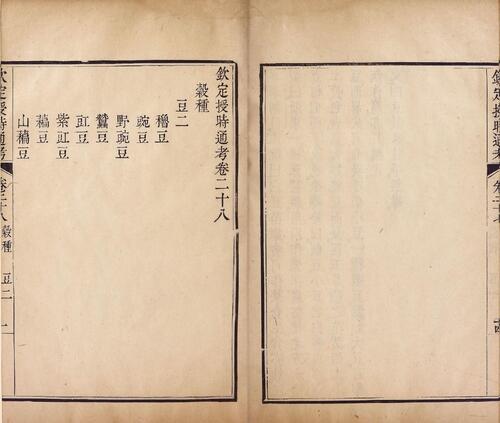 欽定授時通考
卷二十七
十四
欽定授時通考卷二十八
穀種
豆二
穭豆
豌豆
野豌豆
蠶豆
豇豆
紫豇豆
藊豆
山藊豆
欽定授時通考
卷二十八
穀種
豆二
一